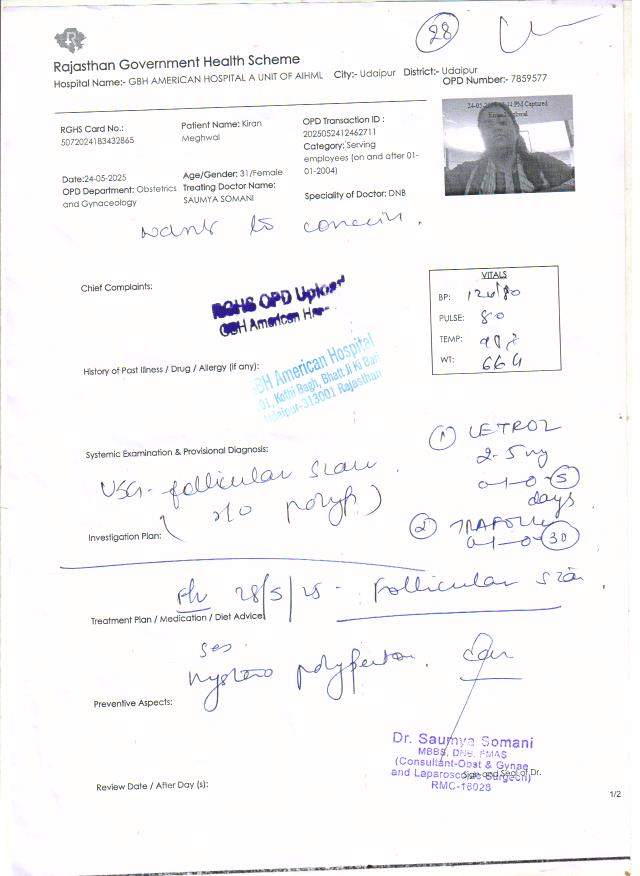 28
Rajasthan Government Health Scheme
Hospital Name:- GBH AMERICAN HOSPITAL A UNIT OF AIHML City:- Udaipur District:- Udaipur
OPD Number:- 7859577
RGHS Card No.:
5072024183432865
Patient Name: Kiran
Meghwal
OPD Transaction ID :
2025052412462711
Category: Serving
employees (on and after 01-
01-2004)
Date:24-05-2025
OPD Department: Obstetrics
and Gynaceology
Age/Gender: 31/Female
Treating Doctor Name:
SAUMYA SOMANI
Speciality of Doctor: DNB
PM Captured
wants to concein.
Chief Complaints:
RGHS OPD Upload
GBH American
VITALS
BP:
PULSE: 80
TEMP:
WT:
History of Past Illness / Drug / Allergy (if any):
GBH American Hospital
01, Kothi Bagh, Bhatt Ji Ki Bari
Udaipur-313001 Rajasthan
Systemic Examination & Provisional Diagnosis:
USG- follicular scan
(r/o polyp)
Investigation Plan:
① LETROZ
2-5 mg
0-1-0- 5
days
②
0-1-0- 30
F/u 28/5/25 - follicular scan
Treatment Plan / Medication / Diet Advice:
Preventive Aspects:
Dr. Saumya Somani
MBBS, DNB, FMAS
(Consultant-Obst & Gynae
and Laparoscopic Surgeon)
RMC-16028
Sign and Seal of Dr.
Review Date / After Day (s):
1/2